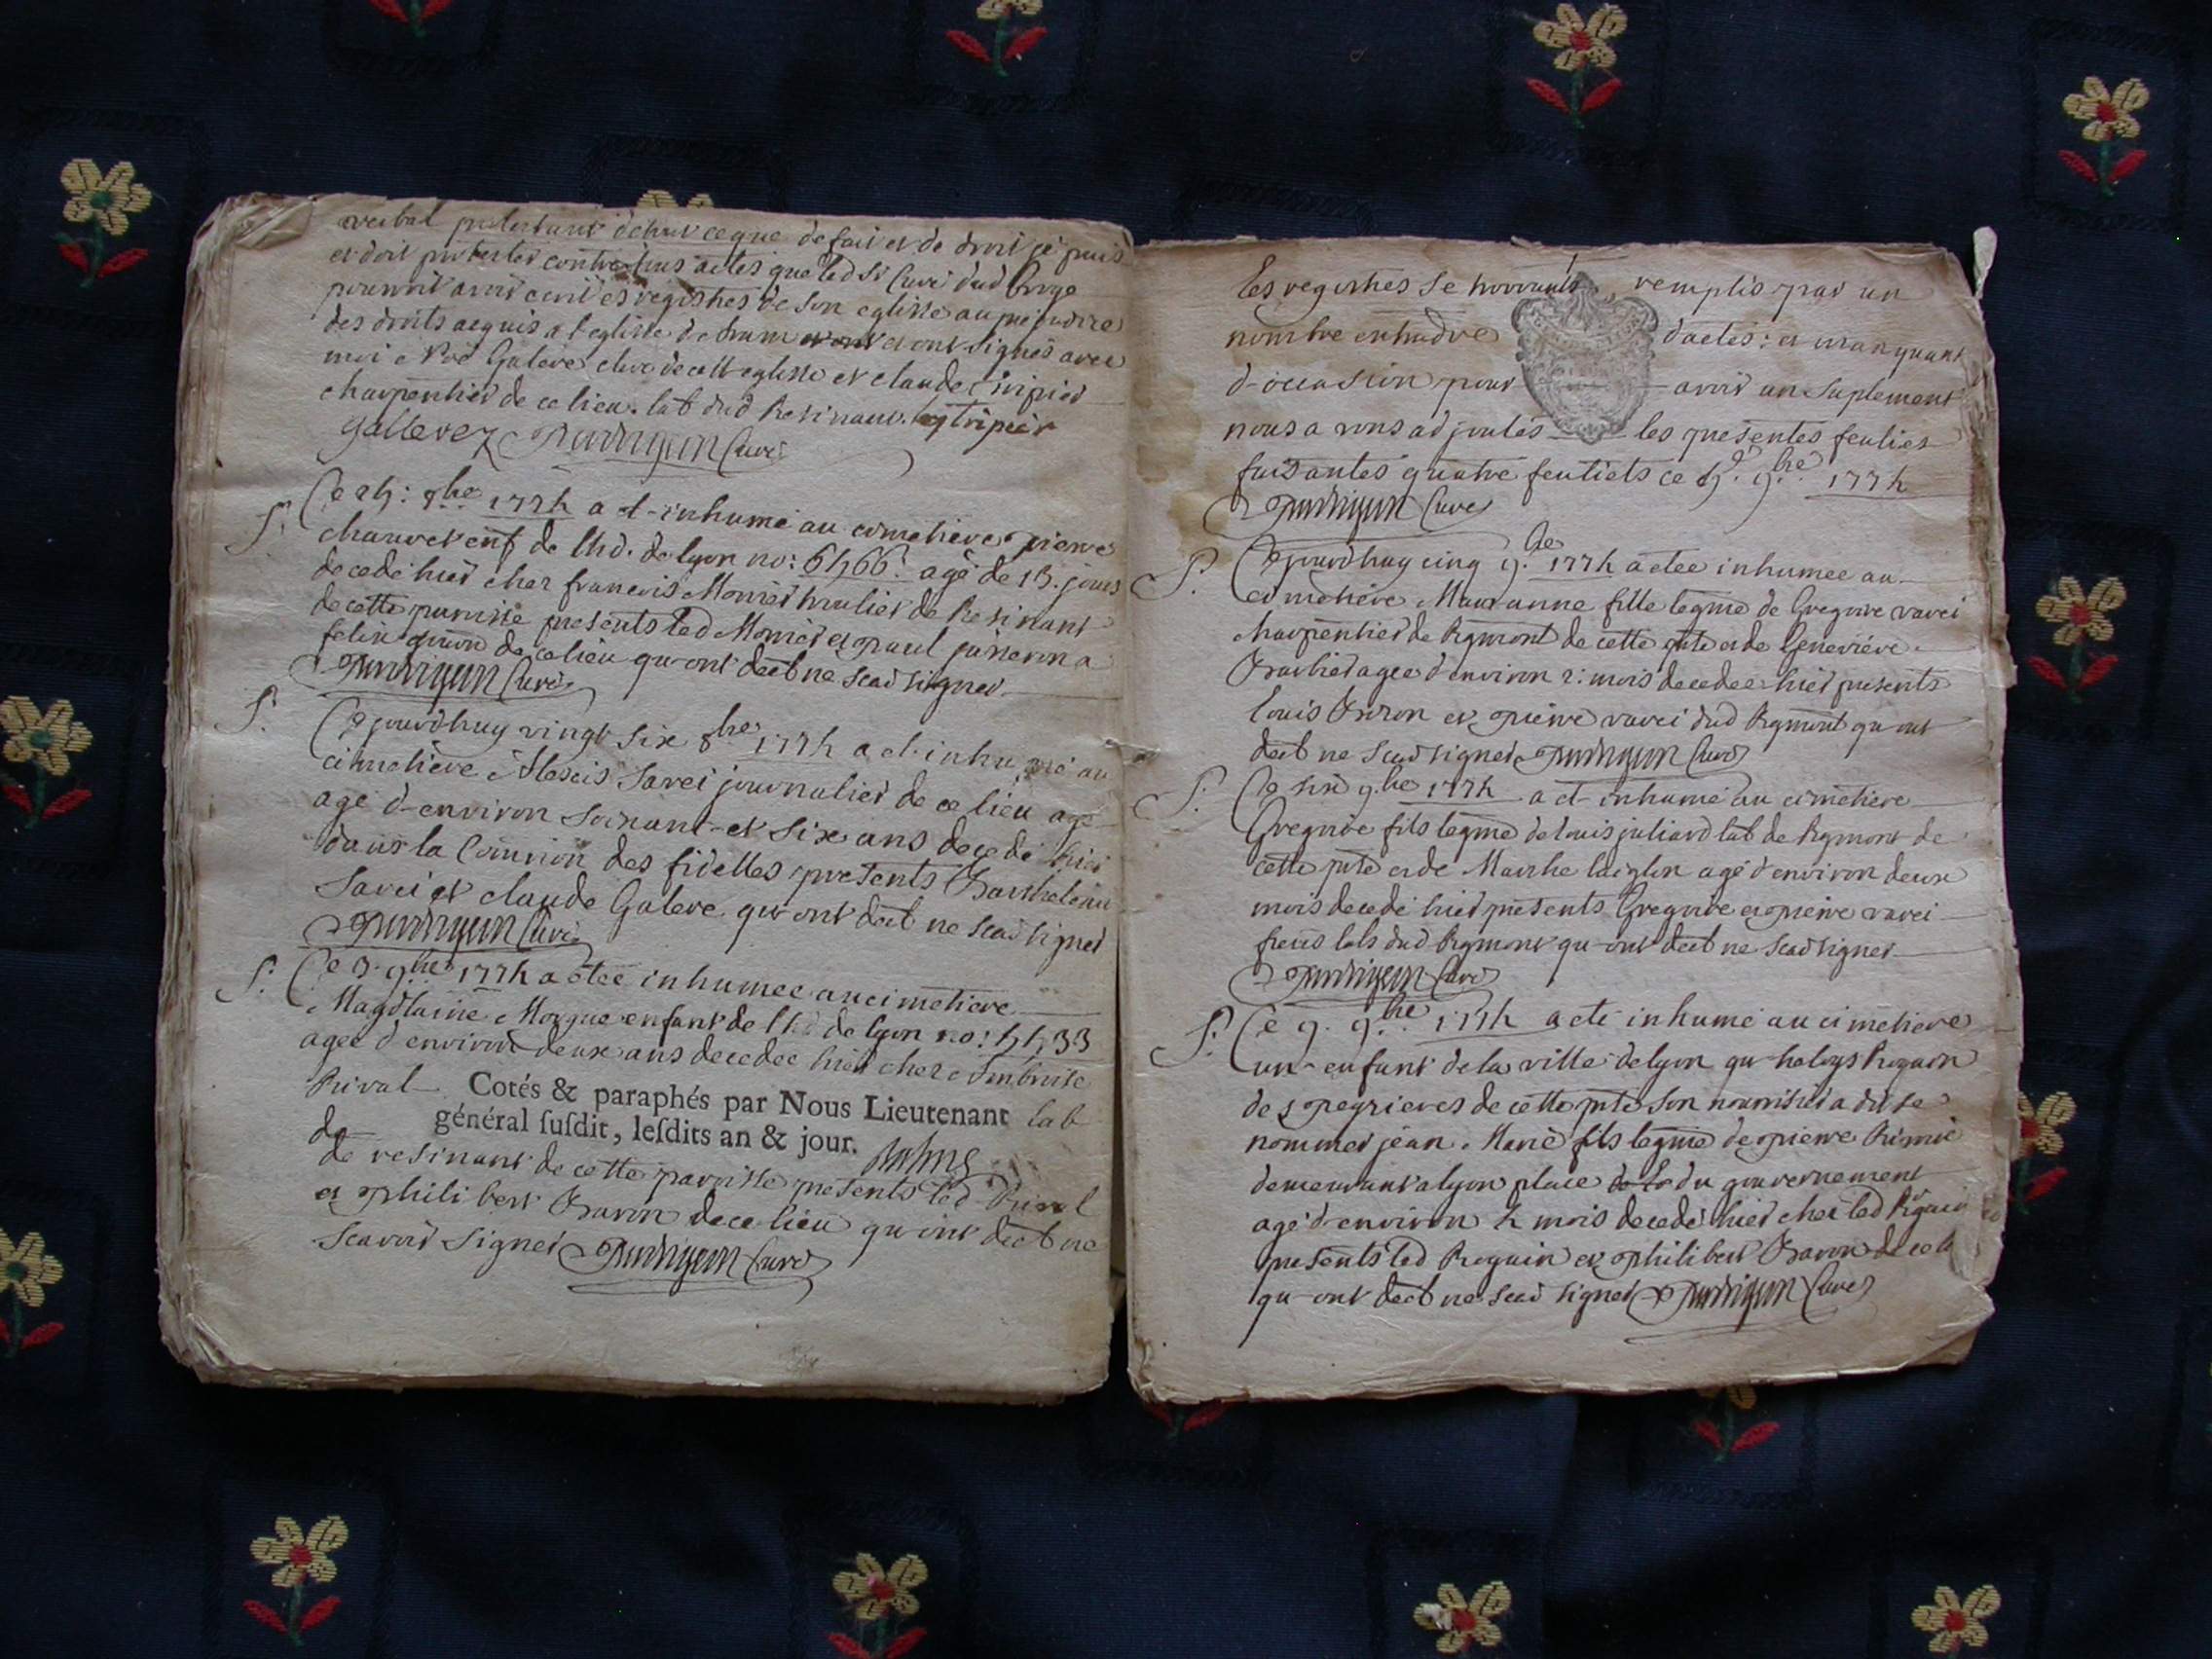 verbal protestant de tout ce que de fait et de droit je puis
et doit protester contre tous actes que led Sr Curé dud
pourroit avoir ecrit es registres de son eglisse au prejudice
des droits acquis a l'eglisse de et ont signés avec
moi Galeve clerc de cette eglisse et claude tripier
charpentier de ce lieu. lab dud Resinans. tripier
gallevez Curé
S. Ce 25: 8bre 1774 a et inhumé au cimetiere pierre
chauvet enf de lhd. de lyon no: 6566: agé de 15. jours
decedé hier chez francois Monier de Resinans
de cette paroisse presents led Monier et paul
de ce lieu qu ont deeb ne scav signer
Curé
S. Cejourdhuy vingt six 8bre 1774 a et inhumé au
cimetiere Alexis Savei journalier de ce lieu agé
agé d-environ soixant-et six ans decedé hier
dans la Comnion des fidelles presents Barthelemi
Savei et claude Galeve qu ont deeb ne scav signer
Curé
S. Ce 3. 9bre 1774 a etee inhumee au cimetiere
Magdlaine Morque enfant de lhd de lyon no: 5533
agee d environ deux ans decedee hier chez Ambroise
Prival Cotés & paraphés par Nous Lieutenant lab
général ſuſdit, leſdits an & jour.
de
de resinans de cette paroisse presents led Prival
et philibert Baron de ce lieu qu ont deeb ne
scavoir signer Curé
Les registres se trouvants remplis par un
nombre d'actes: et manquant
d-occasion pour avoir un suplement
nous avons adjoutés les presentes feulies
faisantes quatre feuliets ce 5. 9bre 1774
Curé
S. Cejourdhuy cinq 9bre 1774 a etee inhumee au
cimetiere Marianne fille legme de Gregoire vavei
charpentier de Rgmont de cette pste et de Genevieve
Barbier agee d environ 2: mois decedee hier presents
louis et pierre vavei dud Rgmont qu ont
deeb ne scav signer Curé
S. Ce six 9bre 1774 a et inhumé au cimetiere
Gregoire fils legme de louis juliard lab de Rgmont de
cette pste et de Marthe laiglon agé d environ deux
mois decedé hier presents Gregoire et pierre vavei
freres labs dud Rgmont qu-ont deeb ne scav signer
Curé
S. Ce 9. 9bre 1774 a eté inhumé au cimetiere
un enfant de la ville de lyon qu Roguin
de cette pste son nourrisier a dit se
nommer jean Marie fils legme de pierre
demeurant a lyon place du gouvernement
agé d-environ 4 mois decedé hier chez led
presents led Roguin et philibert Baron de ce
qu-ont deeb ne scav signer Curé